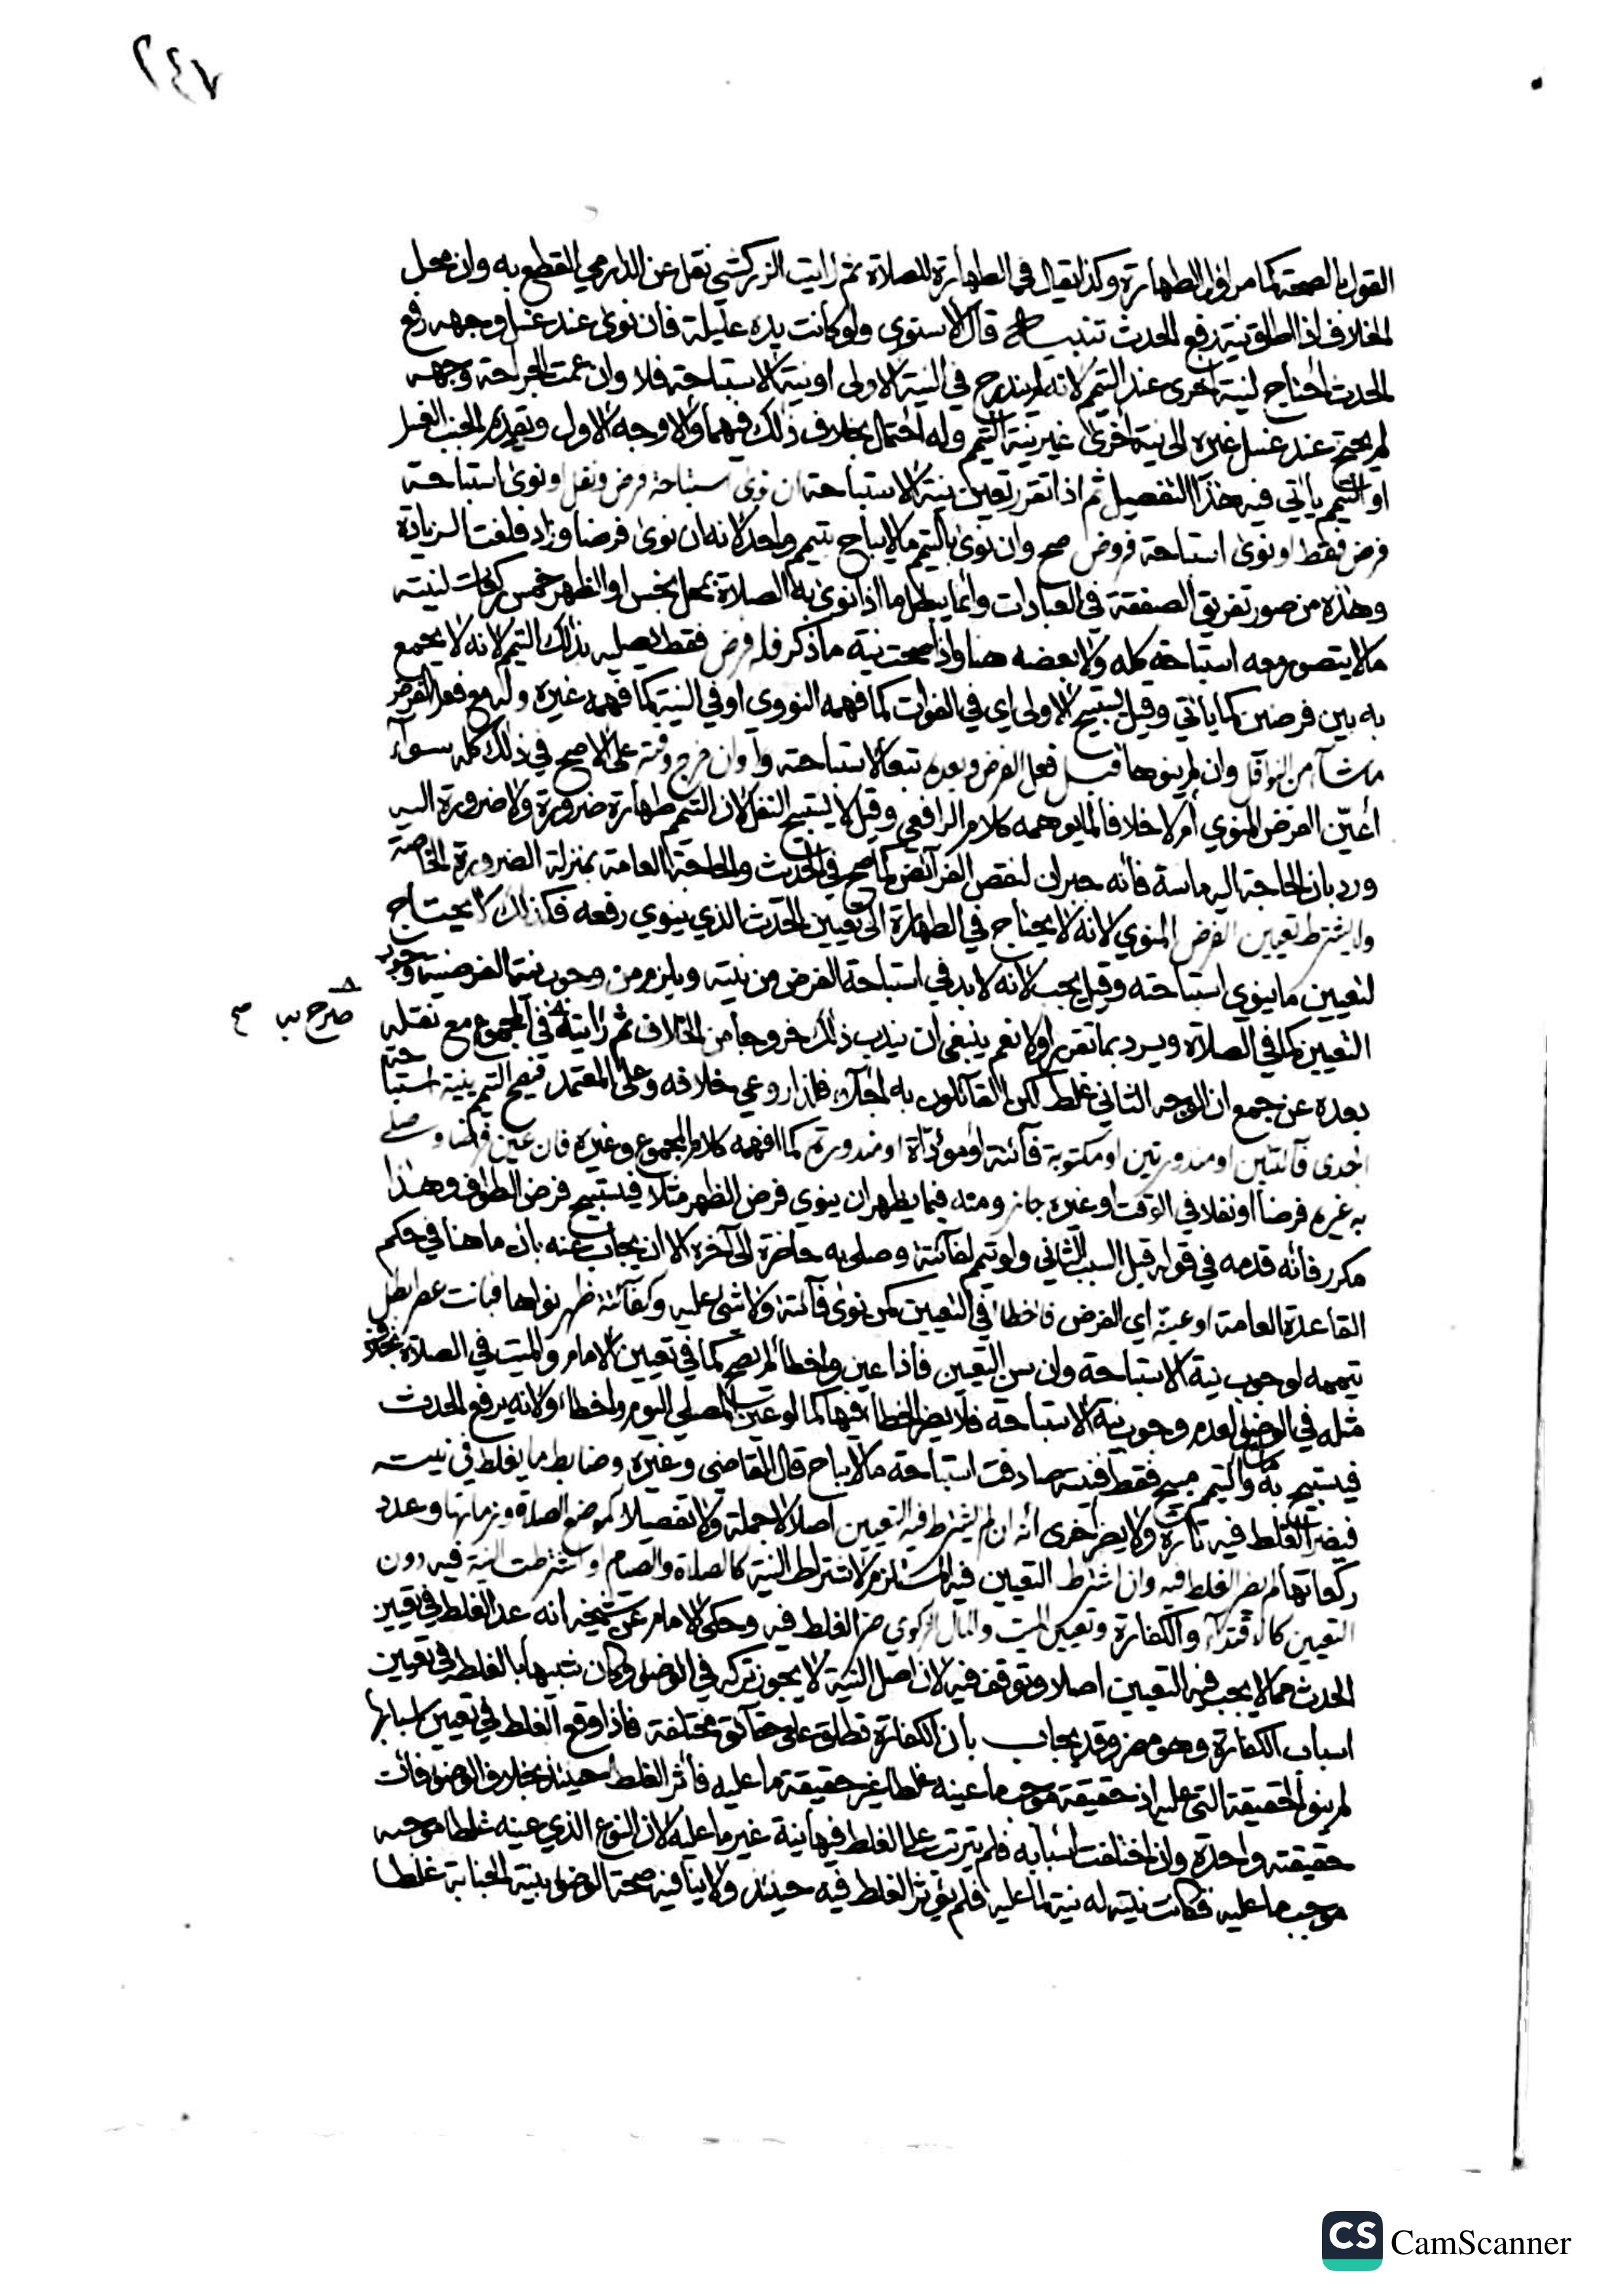 ٢٤٧
القول بالصحة كما مر اول الطهارة وكذا يقال في الطهارة للصلاة ثم رايت الزركشي نقل عن الدارمي القطع به وان محل
الخلاف اذا اطلق نية رفع الحدث تنبيه قال الاسنوي ولو كانت يده عليلة فان نوى عند غسل وجهه رفع
الحدث احتاج لنية اخرى عند التيمم لانه لم يندرج في النية الاولى او نية الاستباحة فلا وان عمت الجراحة وجهه
لم يحتج عند غسل غيره الى نية اخرى غير نية التيمم وله احتمال بخلاف ذلك فيهما والاوجه الاول وتقديم الجنب الغسل
او التيمم ياتي فيه هذا التفصيل ثم اذا تقرر تعين نية الاستباحة ان نوى استباحة فرض ونفل او نوى استباحة
فرض فقط او نوى استباحة فروض صح وان نوى بالتيمم ما لا يباح بتيمم واحد لانه ان نوى فرضا وزاد فلغت الزيادة
وهذه من صور تفريق الصفقة في العبادات وانما يبطل ما اذا نوى به الصلاة بمحل نجس او الظهر خمس ركعات لنيته
ما لا يتصور معه استباحة كله ولا بعضه هنا واذا صحت نية ما ذكر فله فرض فقط يصليه بذلك التيمم لانه لا يجمع
به بين فرضين كما ياتي وقيل يستبيح الاولى اي في الفوات كما فهمه النووي او في النية كما فهمه غيره وله مع فعل الفرض
ما شآ من النوافل وان لم ينوها قبل فعل الفرض وبعده تبعا لاستباحته وا وان خرج وقته على الاصح في ذلك كله سوآء
أعيّن الفرض المنوي أم لا خلافا لما يوهمه كلام الرافعي وقيل لا يستبيح النفل لان التيمم طهارة ضرورة ولا ضرورة اليه
ورد بان الحاجة اليه ماسة فانه جبران لنقص الفرآئض كما صح في الحديث والحاجة العامة بمنزلة الضرورة الخاصة
ولا يشترط تعيين الفرض المنوي لانه لا يحتاج في الطهارة الى تعيين الحدث الذي ينوي رفعه فكذلك لا يحتاج
لتعيين ما ينوي استباحته وقيل يجب لانه لا بد في استباحة الفرض من نيته ويلزم من وجوب نية الفرضية وجوب
التعيين كما في الصلاة ويرد بما تقرر اولا نعم ينبغي أن يندب ذلك خروجا من الخلاف ثم رايته في المجموع مع نقله
صرح به صح
بعده عن جمع ان الوجه الثاني غلط لكن القآئلون به اجلآء فلذا روعي خلافه وعلى المعتمد فيصح التيمم بنية استباحة
احدى فآئتتين او منذورتين او مكتوبة فآئتة او مؤداة او منذورة كما افهمه كلام المجموع وغيره فان عين فرضا وصلى
به غيره فرضا او نفلا في الوقت او غيره جاز ومنه فيما يظهر ان ينوي فرض الظهر مثلا فيستبيح فرض الطواف وهذا
مكرر فانه قدمه في قوله قبل السبب الثاني ولو تيمم لفآئتة وصلى به حاضرة الى آخره الا ان يجاب عنه بان ما هنا في حكم
القاعدة العامة او عينه اي الفرض فاخطا في التعيين كمن نوى فآئتة ولا شي عليه وكفآئتة ظهر نواها فبانت عصرا بطل
تيممه لوجوب نية الاستباحة وان سن التعيين فاذا عين واخطأ لم يصح كما في تعيين الامام والميت في الصلاة بخلاف
مثله في الوضو لعدم وجوب نية الاستباحة فلا يضر الخطأ فيها كما لو عين المصلي اليوم واخطأ ولانه يرفع الحدث
فيستبيح به والتيمم مبيح فقط فنيته صادفت استباحة ما لا يباح قال القاضي وغيره وضابط ما يغلط في نيته
فيضر الغلط فيه تارة ولا يضر أخرى انه ان لم يشترط فيه التعيين أصلا لا جملة ولا تفصيلا كموضع الصلاة وزمانها وعدد
ركعاتها لم يضر الغلط فيه وان اشترط التعيين فيه المستلزم لاشتراط النية كالصلاة والصيام او اشترطت النية فيه دون
التعيين كالاقتدآء والكفارة وتعيين الميت والمال الزكوي ضر الغلط فيه وحكى الامام عن شيخه انه عد الغلط في تعيين
الحدث مما لا يجب فيه التعيين اصلا وتوقف فيه لان اصل النية لا يجوز تركه في الوضو وكان شبيها بالغلط في تعيين
اسباب الكفارة وهو مضر وقد يجاب بأن الكفارة تطلق على حقآئق مختلفة فاذا وقع الغلط في تعيين اسبابها
لم ينو الحقيقة التي عليه اذ حقيقة موجب ما عينه غلطا غير حقيقة ما عليه فأثر الغلط حينئذ بخلاف الوضو فانت
حقيقته واحدة وان اختلفت أسبابه فلم يترتب على الغلط فيها نية غير ما عليه لان النوع الذي عينه غلطا موجبه
موجب ما عليه فكانت نيته له نية لما عليه فلم يؤثر الغلط فيه حينئذ ولا ينافيه صحة الوضو بنية الجنابة غلطا
CS CamScanner